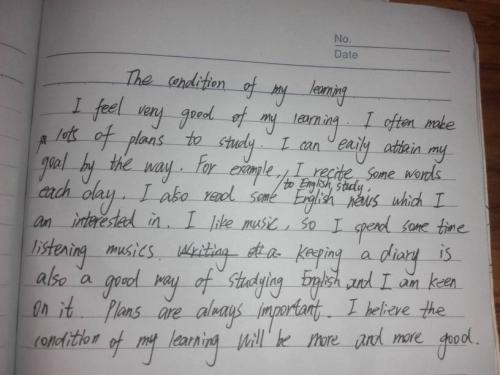 No.
Date
The condition of my learning
I feel very good of my learning. I often make
lots of plans to study. I can eaily attain my
goal by the way. For example, I recite some words
to English study,
each day. I also read some English news which I
am interested in. I like music, so I spend some time
listening musics. Writing a keeping a diary is
also a good way of studying English, and I am keen
on it. Plans are always important. I believe the
condition of my learning will be more and more good.